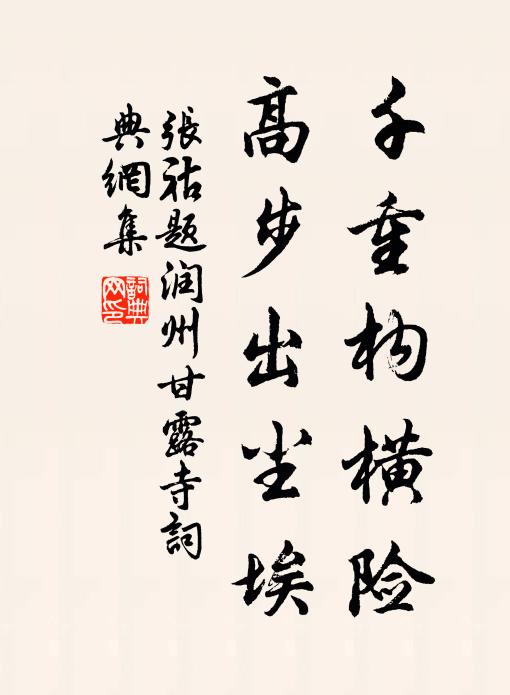 千重构横险
高步出尘埃
張祜题润州甘露寺詞
典網集
詞典
网印